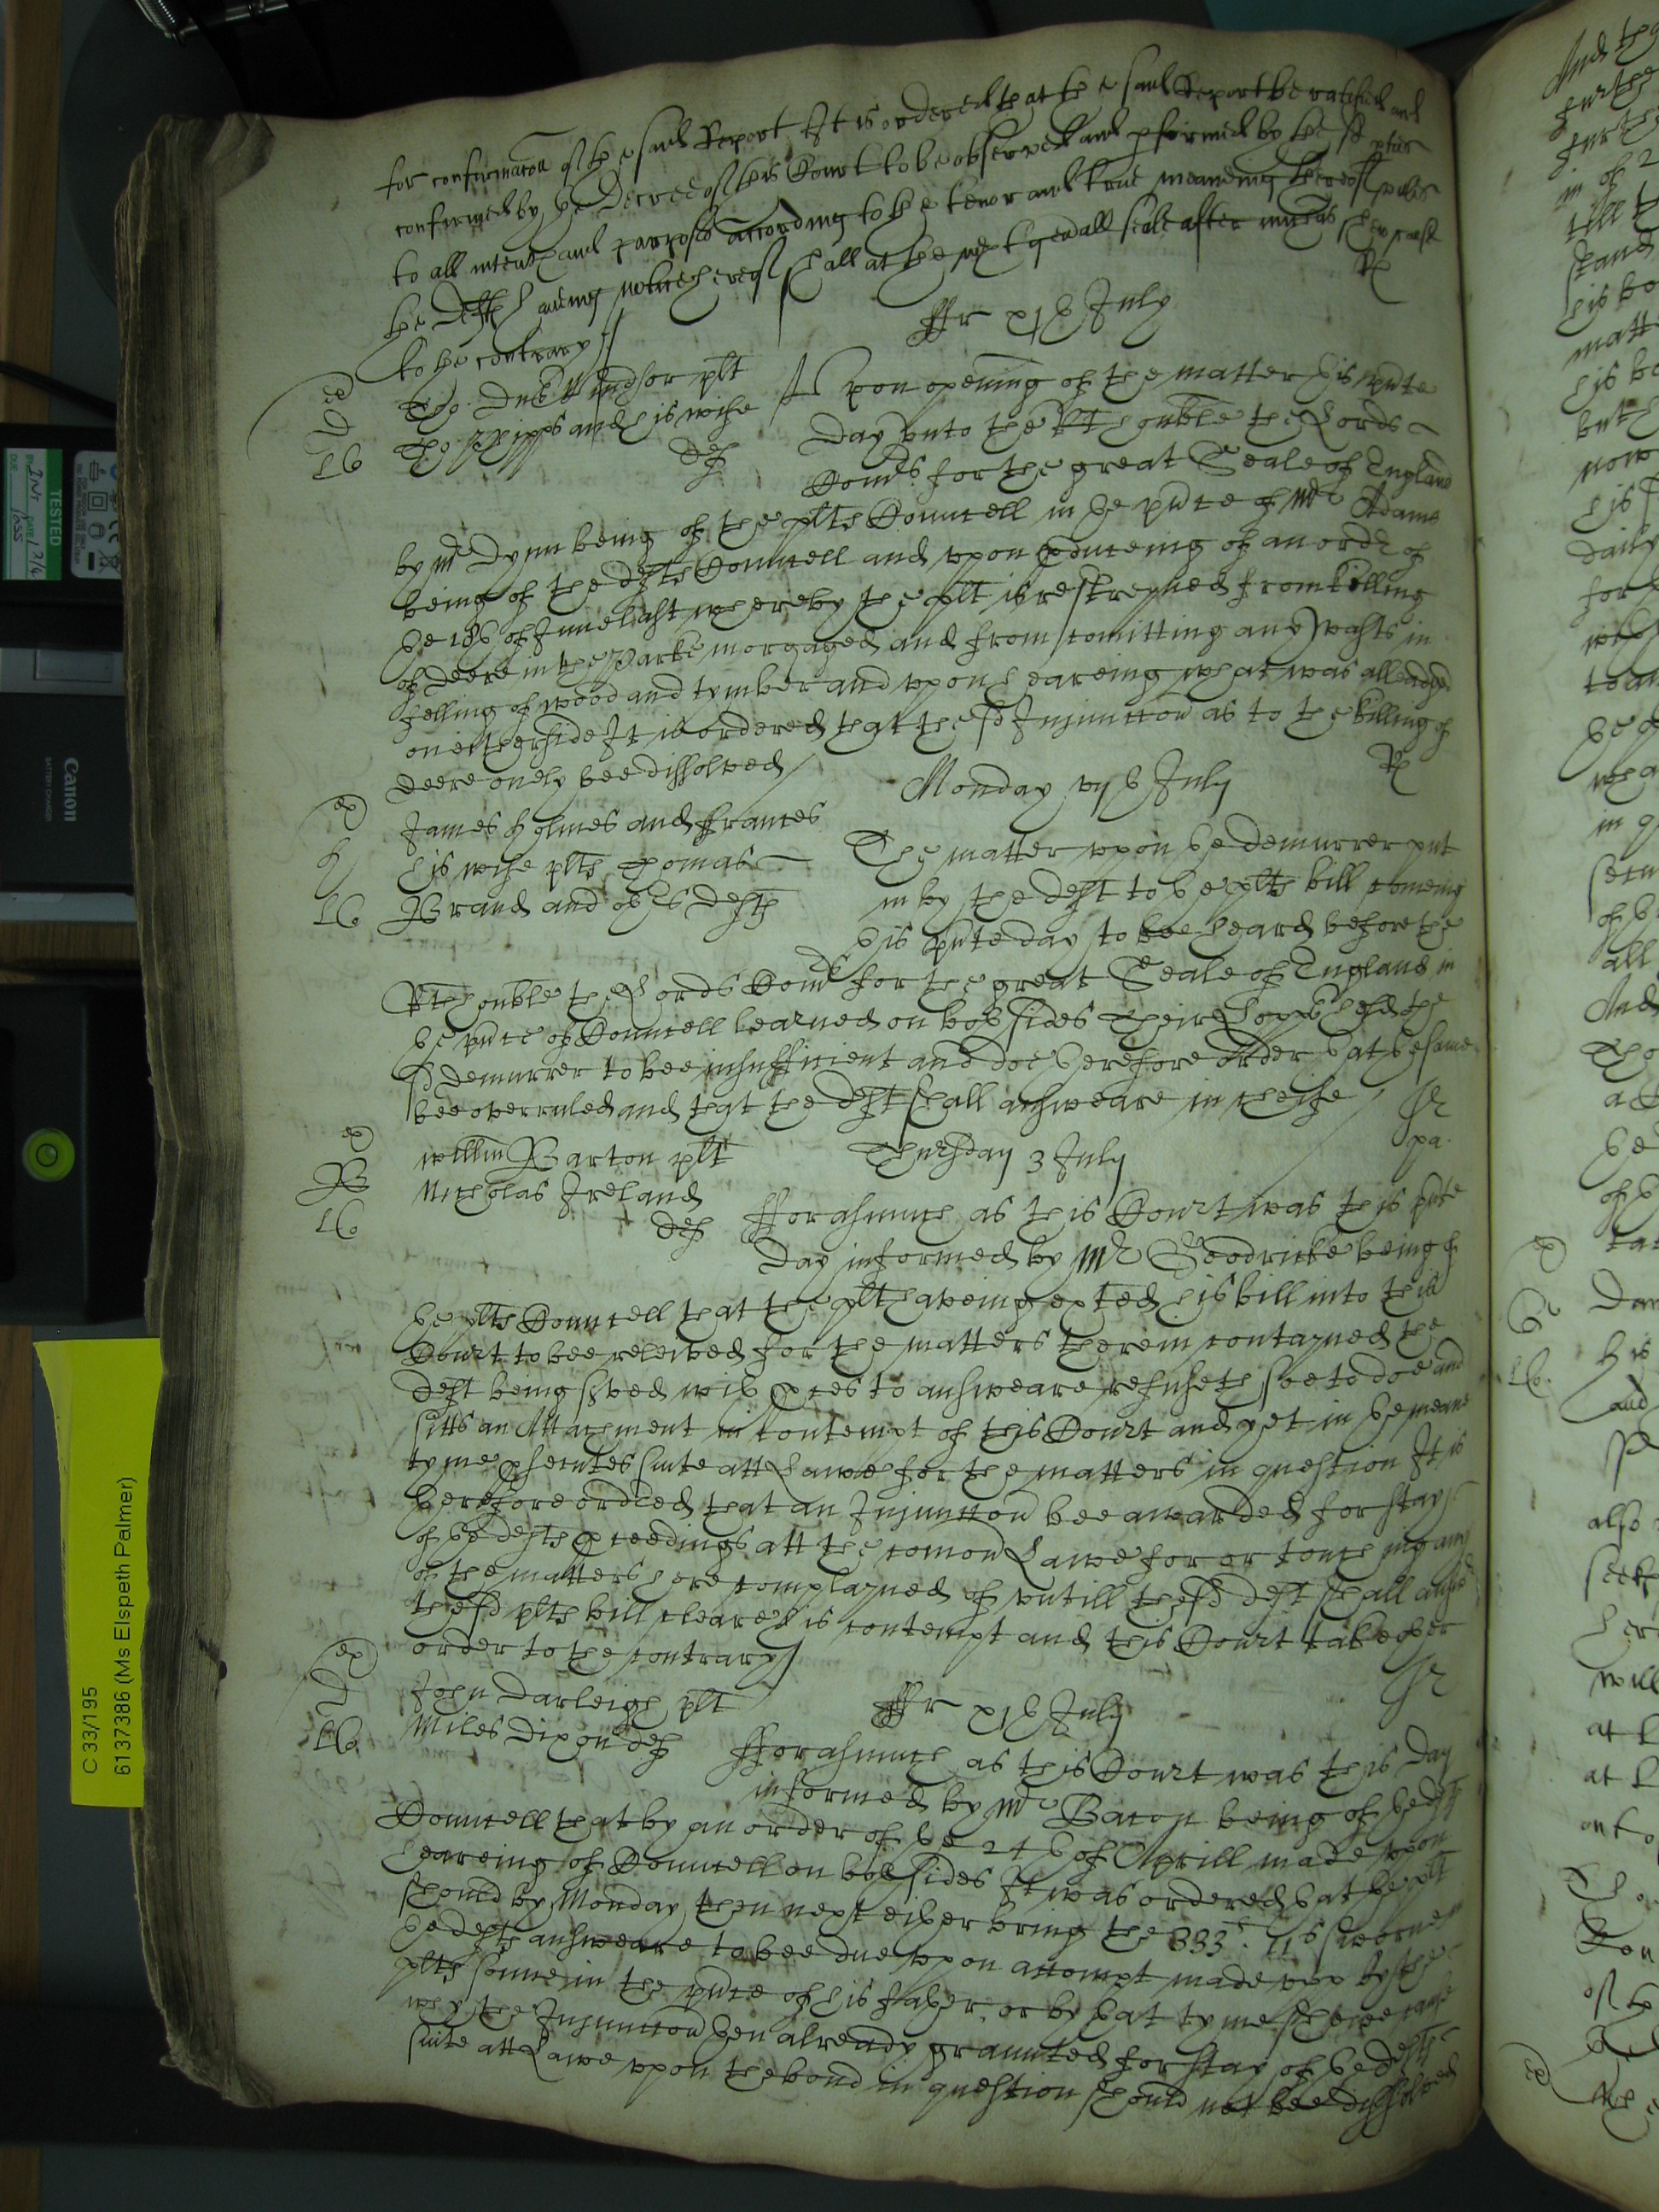 for confirmacon of the said Report It is ordered that the said Report be ratified and
confirmed by the Decree of this Court to be observed and pformed by the sd pties
to all intents and purposes according to the tenor and true meaning thereof unles
the Deft haveing notice hereof shall at the next genall seale after shew cause
to the contrary
Rl
ffr xith July
ex
D
lib
Tho: Windsor plt
Tho: Phipps and his wife
def
Upon opening of the matter this pnte
day unto the Rt honble the Lords
Comrs for the great Seale of England
by Mr Dynn being of the plts Councell in the pnte of Mr Adams
being of the defts Councell and upon pduceing of an ordr of
the 18th of June last whereby the plt is restreyned from killing
of deere in the Parke morgaged and from comitting any wasts in
felling of wood and tymber and upon heareing what was alleadged
on either side It is ordered that the sd Injunccon as to the killing of
deere onely bee dissolved
Rl
Monday viith July
ex
H
lib
James Holmes and ffrances
his wife plts Thomas
Brand and others defts
The matter upon the demurrer put
in by the deft to the plts bill comeing
this pnte day to bee heard before the
Rt honble the Lords Comrs for the great Seale of England in
the pnce of Councell learned on both sides Their Lopps held the
sd demurrer to bee insufficient and doe therefore order that the same
bee overruled and that the deft shall answeare in cheife
Jr
pa.
ex
B
lib
willm Barton plt
Nicholas Ireland
def
Thursday 3 July
fforasmuch as this Court was this pnte
day informed by Mr Goodricke being of
the plts Councell that the plt haveing exted his bill into this
Court to bee releived for the matters therein contayned the
deft being served with pces to answeare refuseth soe to doe and
sitts an Attachment in contempt of this Court and yet in the meane
tyme psecutes suite att Lawe for the matters in question It is
therefore ordred that an Injunccon bee awarded for stay
of the defts pceedings att the comon Lawe for or touching any
of the matters here complayned of untill the sd deft shall answ
the sd plts bill cleare his contempt and this Court take other
order to the contrary
Jr
ex
D
lib
John Darleigh plt
Miles Dixon def
ffr xith July
fforasmuch as this Court was this day
informed by Mr Bacon being of the defts
Councell that by an order of the 24th of Aprill made upon
heareing of Councell on both sides It was ordered that the plt
should by Monday then next either bring the 333li 11s sworne in
the defts answeare to bee due upon accompt made upp by the
plts sonne in the pnce of his father or by that tyme shewe cause
why the Injunccon then already graunted for stay of the defts
suite att Lawe upon the bond in question should not bee dissolved
C 33/195
6137386 (Ms Elspeth Palmer)
Canon
BATTERY CHARGER
TESTED